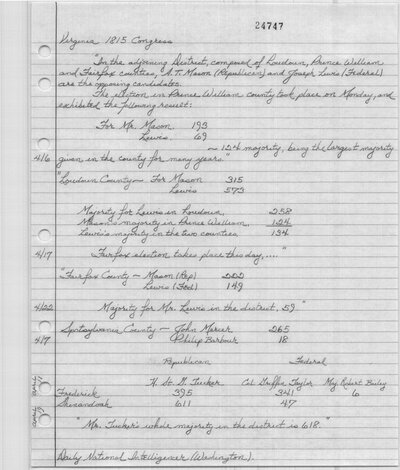 24747
Virginia 1815 Congress
"In the adjoining District, composed of Loudoun, Prince William
and Fairfax counties, A. T. Mason (Republican) and Joseph Lewis (Federal)
are the opposing candidates.
The election in Prince William county took place on Monday, and
exhibited the following result:
For Mr. Mason 193
Lewis 69
— 124 majority, being the largest majority
4/16 given in the county for many years."
"Loudoun County — For Mason 315
Lewis 573
Majority for Lewis in Loudoun, 258
Mason's majority in Prince William 124
Lewis's majority in the two counties 134
4/17 Fairfax election takes place this day,...."
"Fairfax County — Mason (Rep) 222
Lewis (Fed) 149
4/22 Majority for Mr. Lewis in the district, 59"
Spotsylvania County — John Mercer 265
4/7 Philip Barbour 18
Republican Federal
H. St. G. Tucker Col. Griffin Taylor Maj. Robert Bailey
Frederick 395 341 6
Shenandoah 611 47
"Mr. Tucker's whole majority in the district is 618."
Daily National Intelligencer (Washington).